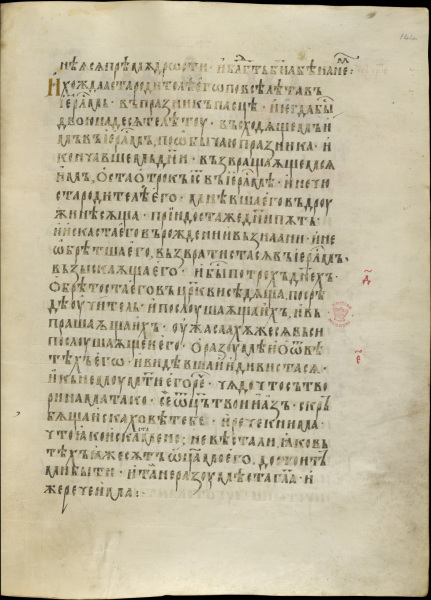 нѣѧсѧ прѣмѫдрости · и бл҃гть б҃иꙗ бѣ на не :
Ихождаста родителѣ его по всѣ лѣта въ
іерл҃мъ · въ празникъ пасцѣ · и егда бы
двоюнадесѧте лѣтоу · въсходѧщемь и
мъ въ іерл҃мъ, по обычаю празника · и
конъчавшемь дн҃и · възвращаѫщемсѧ
имъ, оста отрокъ іс҃ въ іерл҃мѣ · и не чю
ста родителѣ его · мнѣвша его въ дроу
жинѣ сѫща · прїидоста же дн҃и пѫть
и искаста его въ рождени и въ знаани · и не
ѡбрѣтша его, възвратистасѧ въ іерл҃мъ ·
възыскаѫща его · и бы по трехъ дн҃ехъ ·
обрѣтоста его въ цр҃кви сѣдѧща, посрѣ
дѣ оучитель · и послоушаѫща ихъ, и въ
прашаѫща ихъ · оужасаахѫжесѧ вьси
послоушаѫщеи его · о разоумѣ и о ѿвѣ
тѣхъ его · и видѣвша и дивистасѧ ·
и къ немоу мт҃и его рⷱе · чѧдо что сътво
ри нама тако · се ѡц҃ь твои и азъ · скръ
бѧща искаховѣ тебе · и рече к нима ·
что ꙗко искаста мене ; не вѣста ли, ꙗко въ
тѣхъ ꙗже сѫтъ ѿц҃а моего, достоитъ
ми быти · и та не разоумѣста гл҃а · и
же рече има :·
д҃
е҃